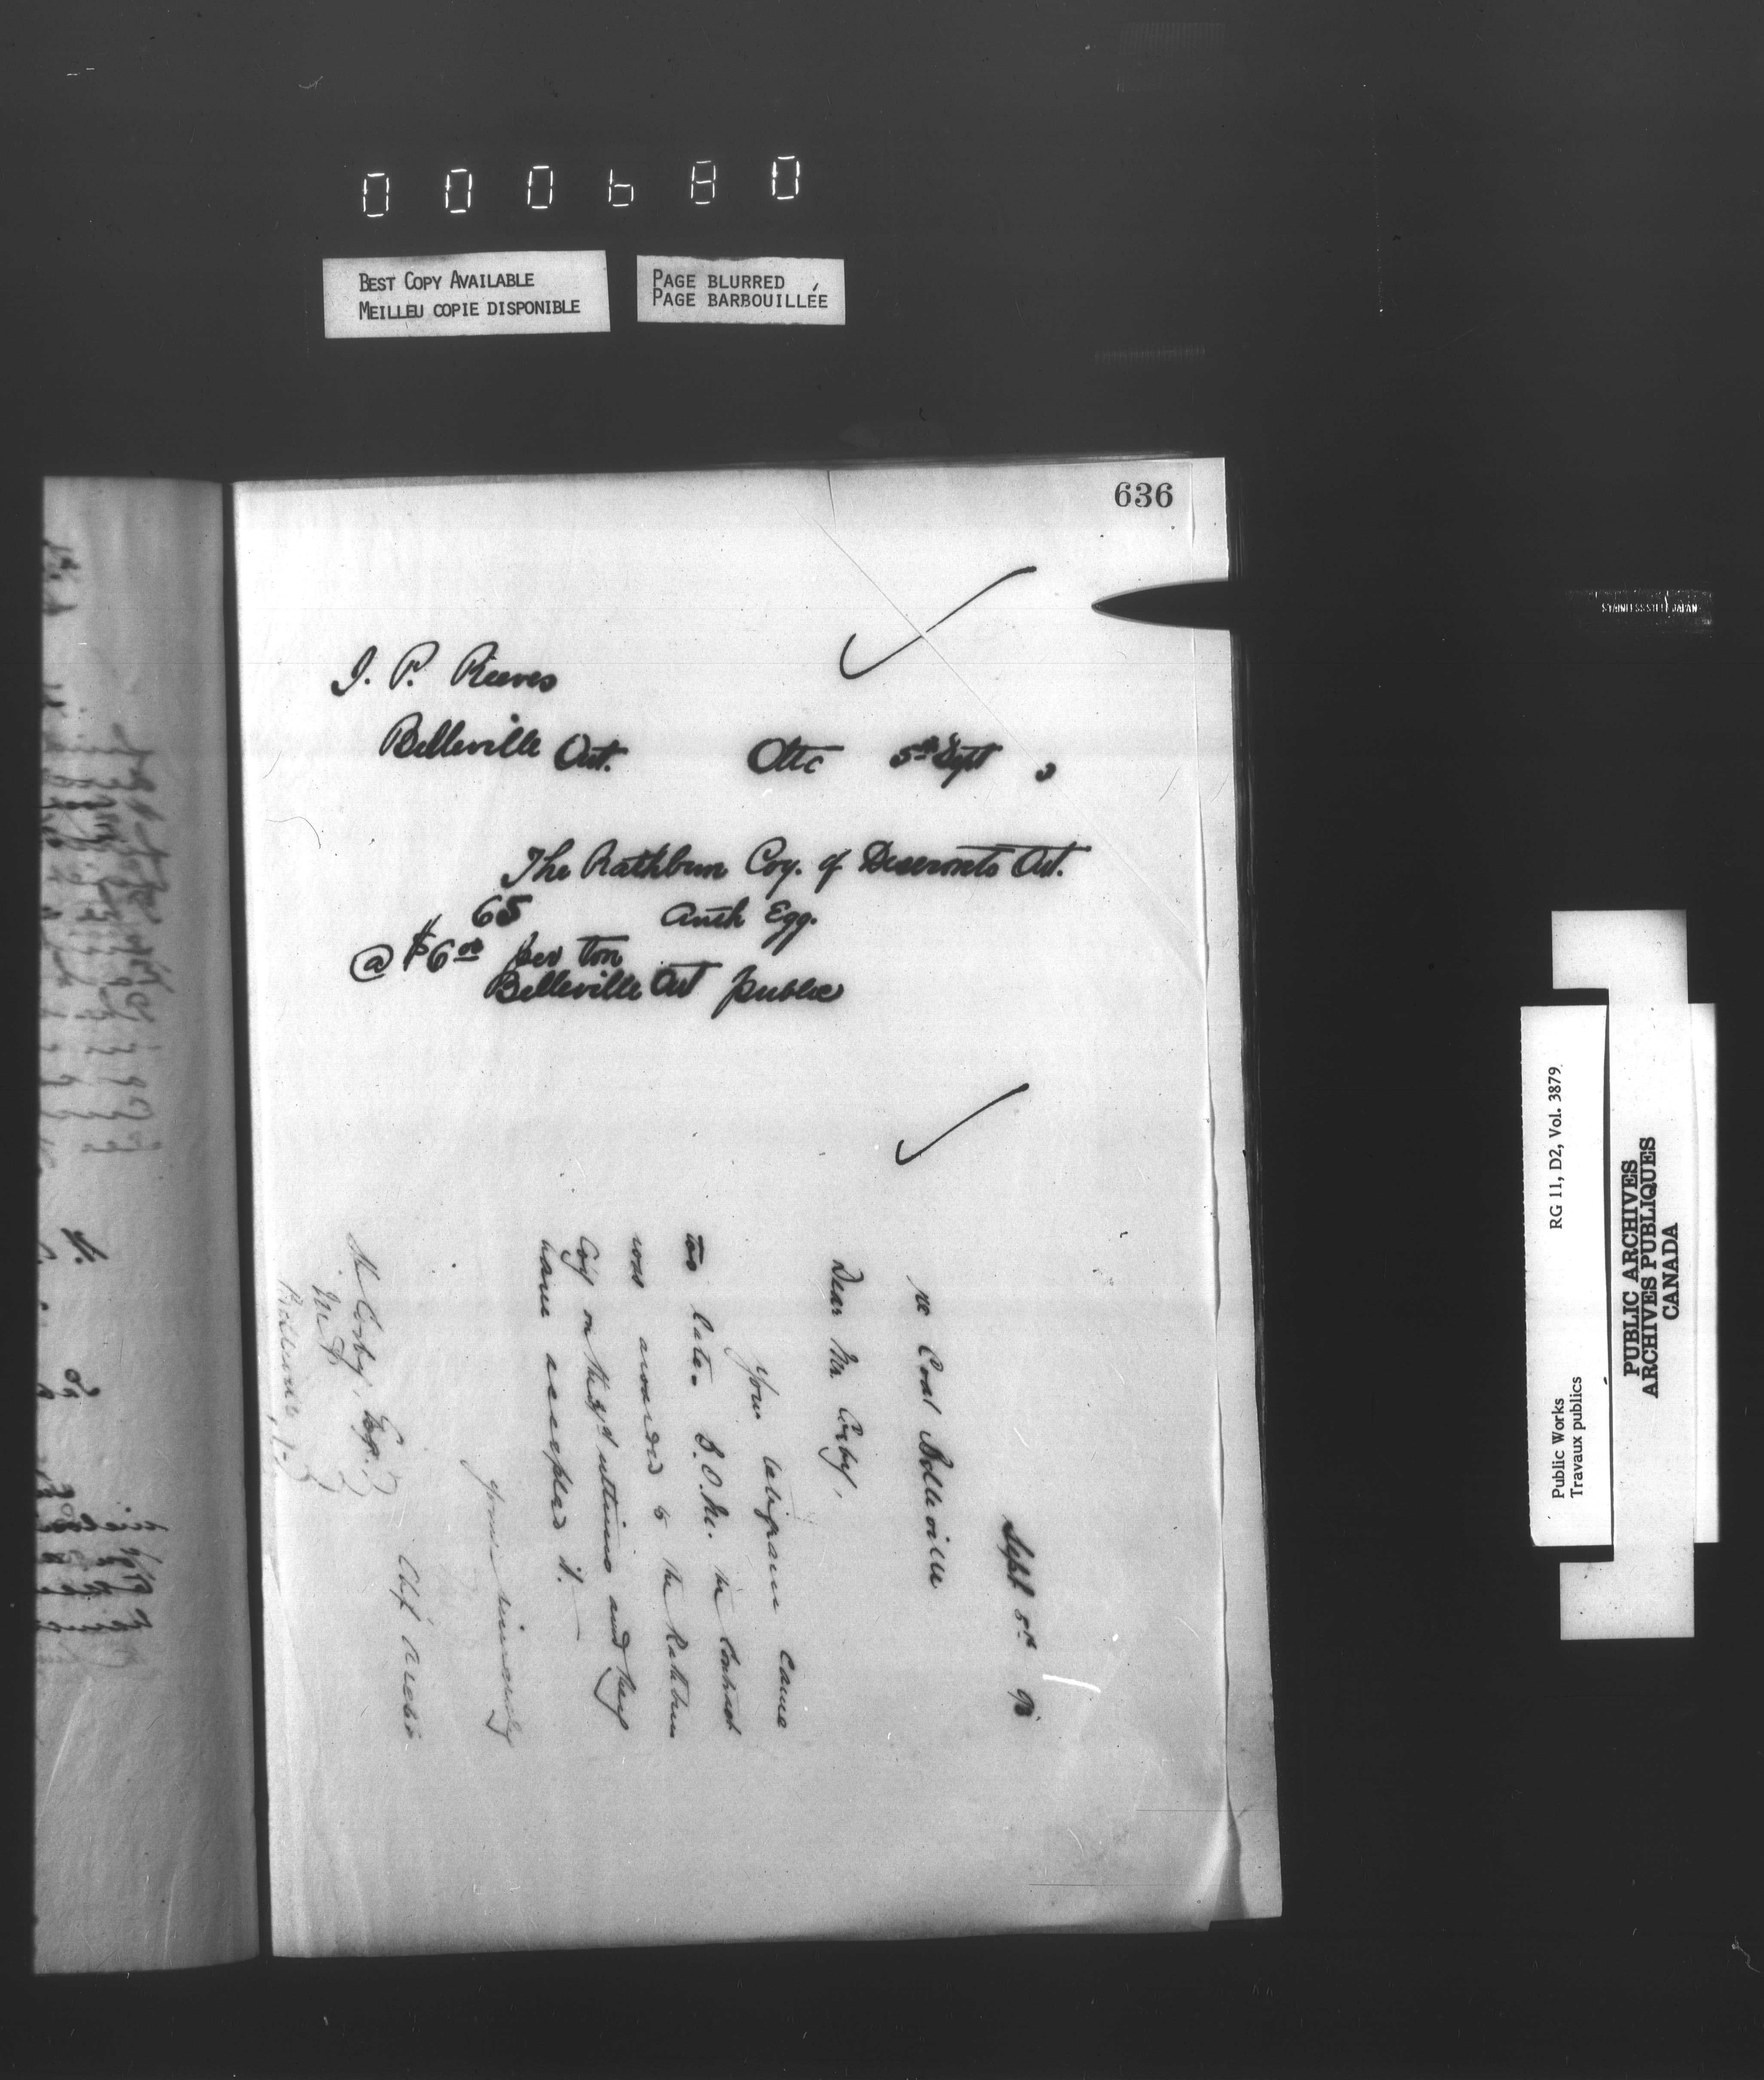 000680
BEST COPY AVAILABLE
MEILLEU COPIE DISPONIBLE
PAGE BLURRED
PAGE BARBOUILLÉE
636
J. P. Reeves
Belleville Ont. Otta 5th Sept
The Rathbun Coy. of Deseronto Ont.
65 Anth Egg.
@ $6.00 per ton
Belleville Ont public
Sept 5th
re Coal Belleville
Dear Mr. Corby,
Your telegram came
too late. The contract
was awarded to the Rathbun
Coy on the 3rd and they
have accepted it.
Yours sincerely
Chf Archt
Corby, Esq.
M P
Belleville, O.
STAINLESS STEEL JAPAN
RG 11, D2, Vol. 3879
Public Works
Travaux publics
PUBLIC ARCHIVES
ARCHIVES PUBLIQUES
CANADA